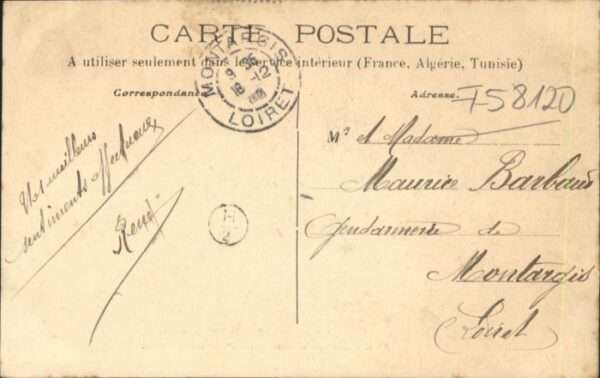 CARTE POSTALE
A utiliser seulement dans le service intérieur (France, Algérie, Tunisie)
Correspondance
Adresse
MONTARGIS
LOIRET
F58120
Mr et Madame
Maurice Barbaud
Gendarmerie de
Montargis
Loiret
meilleurs
sentiments affectueux
René